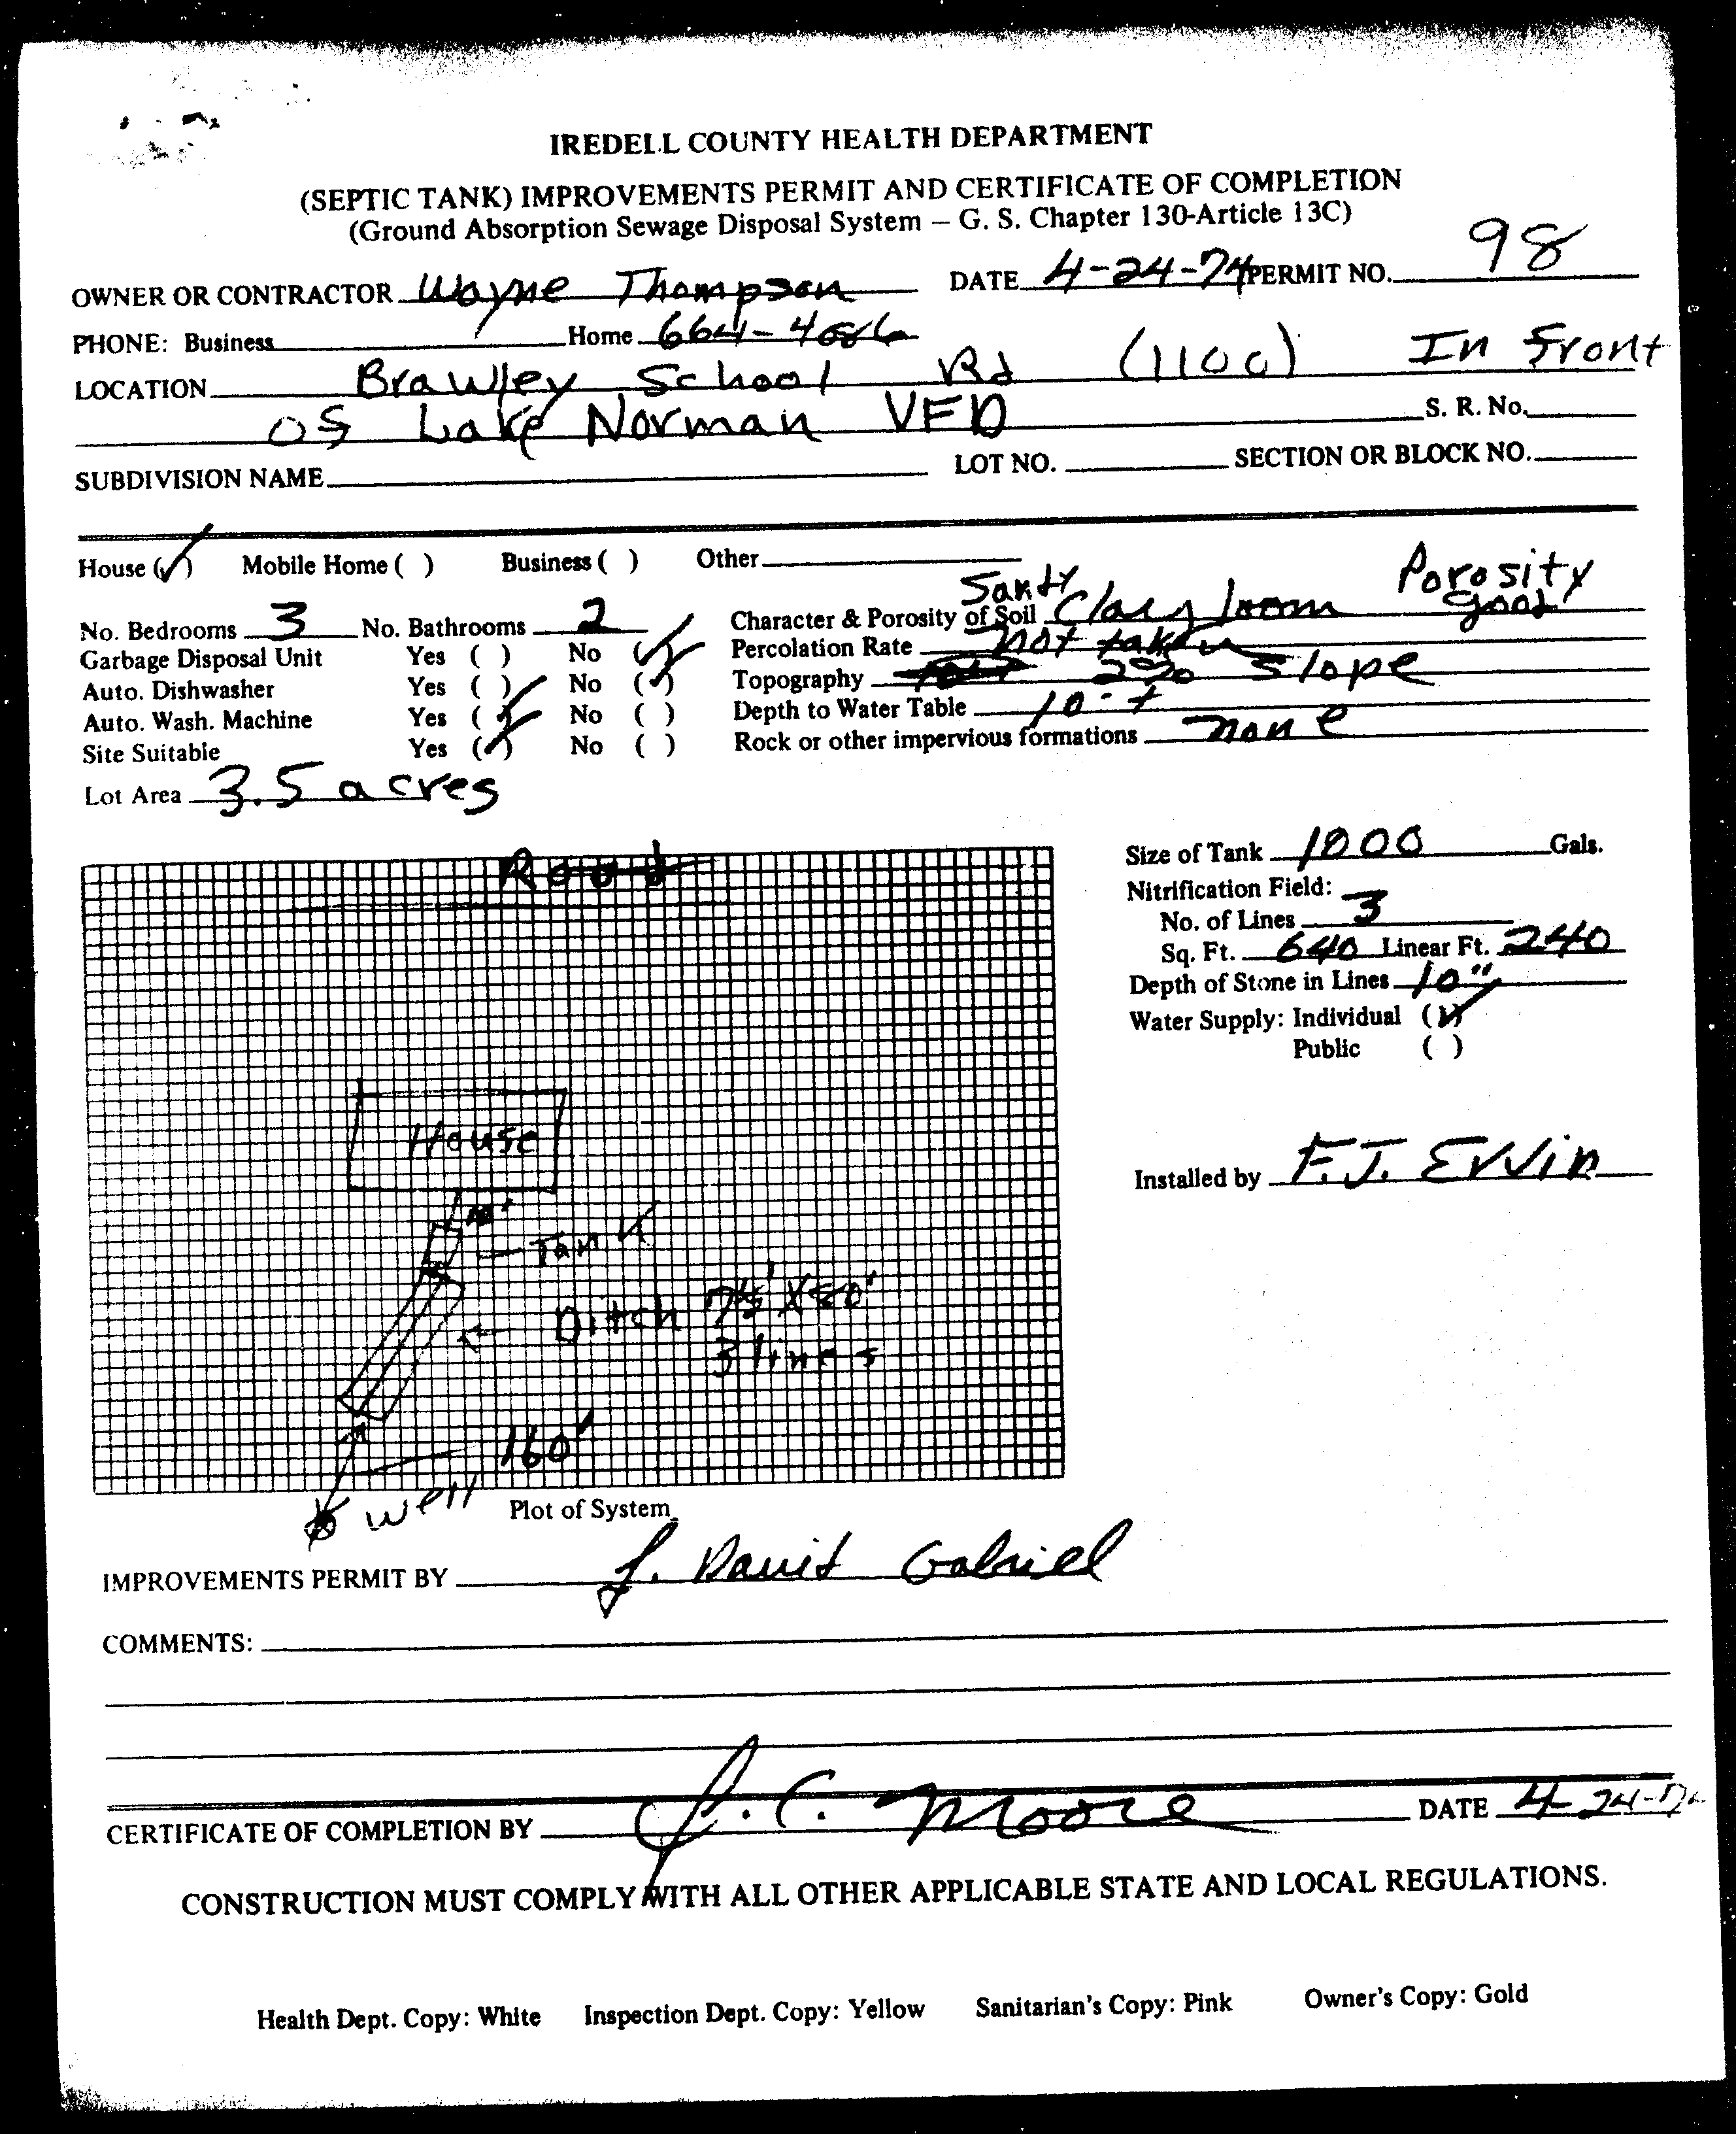 IREDELL COUNTY HEALTH DEPARTMENT
(SEPTIC TANK) IMPROVEMENTS PERMIT AND CERTIFICATE OF COMPLETION
(Ground Absorption Sewage Disposal System – G. S. Chapter 130-Article 13C)
OWNER OR CONTRACTOR Wayne Thompson DATE 4-24-74 PERMIT NO. 98
PHONE: Business Home
LOCATION Brawley School Rd (1100) In Front
OF Lake Norman VFD S. R. No.
SUBDIVISION NAME LOT NO. SECTION OR BLOCK NO.
House (✓) Mobile Home ( ) Business ( ) Other
No. Bedrooms 3 No. Bathrooms 2 Character & Porosity of Soil Sandy Clay loam Porosity good
Garbage Disposal Unit Yes ( ) No (✓) Percolation Rate not taken
Auto. Dishwasher Yes ( ) No (✓) Topography 2% Slope
Auto. Wash. Machine Yes (✓) No ( ) Depth to Water Table 10' +
Site Suitable Yes (✓) No ( ) Rock or other impervious formations none
Lot Area 3.5 acres
Road
Size of Tank 1000 Gals.
Nitrification Field:
No. of Lines 3
Sq. Ft. 640 Linear Ft. 240
Depth of Stone in Lines 10"
Water Supply: Individual (✓)
Public ( )
House
Installed by F.J. Ervin
Tank
Ditch X 80'
3 lines
160'
well
Plot of System
IMPROVEMENTS PERMIT BY J. David Gabriel
COMMENTS:
CERTIFICATE OF COMPLETION BY J. C. Moore DATE 4-24-74
CONSTRUCTION MUST COMPLY WITH ALL OTHER APPLICABLE STATE AND LOCAL REGULATIONS.
Health Dept. Copy: White Inspection Dept. Copy: Yellow Sanitarian's Copy: Pink Owner's Copy: Gold